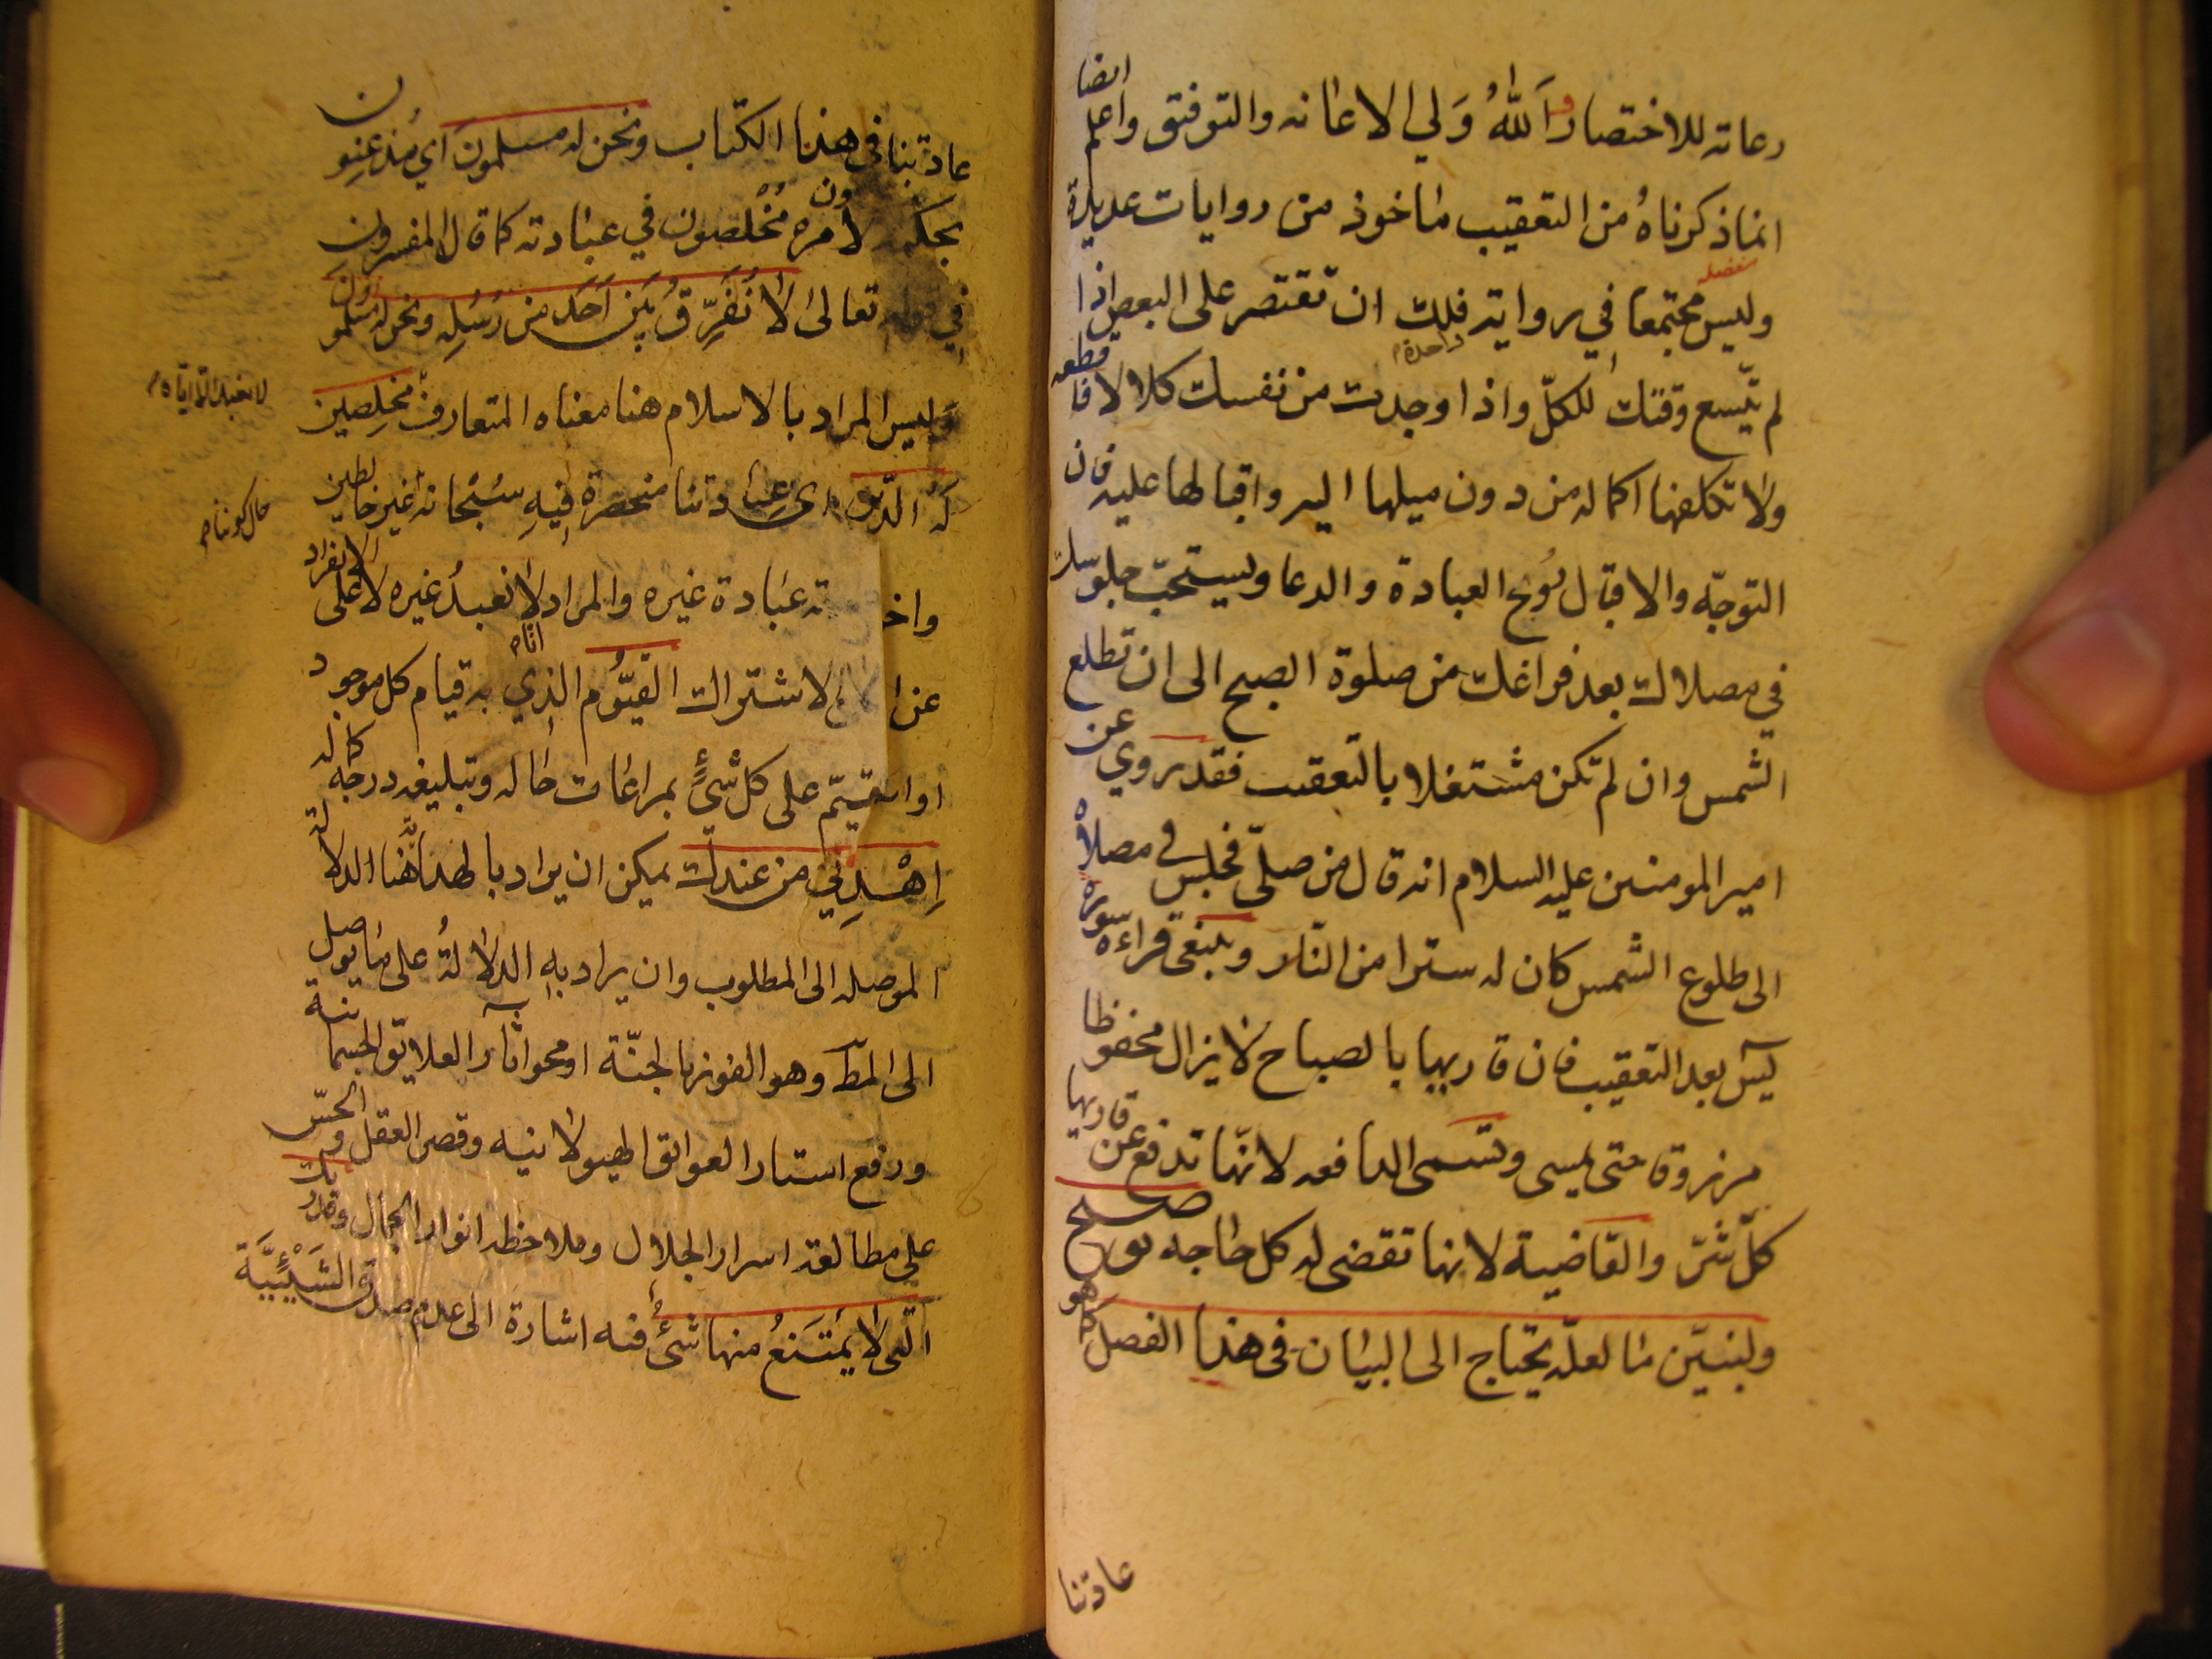 رعاته للاختصار والله ولي الاعانه والتوفيق واعلم ايضا
انماذكرناه من التعقيب ماخوذ من روايات عديدة
وليس مجتمعا في رواية واحدة فلك ان تقتصر على البعض اذا
لم يتسع وقتك للكل واذا وجدت من نفسك كلالا فاقطعه
ولا تكلفها اكماله من دون ميلها اليه واقبالها عليه فان
التوجّه والاقبال روح العبادة والدعا ويستحبّ جلوسك
في مصلاك بعد فراغك من صلوة الصبح الى ان تطلع
الشمس وان لم تكن مشتغلا بالتعقيب فقد روي عن
امير المومنين عليه السلام انه قال من صلّى فجلس في مصلاه
الى طلوع الشمس كان له سترا من النّار وينبغي قراءة سورة
يس بعد التعقيب فان قاريها بالصباح لا يزال محفوظا
مرزوقا حتى يمسى وتسمى الدافعه لانّها تدفع عن قاريها
كلّ شرّ والقاضية لانها تقضى له كل حاجه توضيح
ولنبيّن ما لعلّه يحتاج الى البيان في هذا الفصل كما هو
عادتنا
عادتنا في هذا الكتاب ونحن له مسلمون اي مذعنون
بحكمه لامره مُخْلصون في عبادته كما قال المفسرون
في قوله تعالى لا نُفَرِّقُ بَيْنَ اَحَدٍ من رُسُلِهِ ونحن له مسلمون
وليس المراد بالاسلام هنا معناه المتعارف مخلصين
لا نعبد الا اياه
لَهُ الدّين اي عبادتنا منحصرة فيهِ سُبْحانه غير خالطين
حال كوننا
واخ ته عبادة غيره والمراد لا نعبدُ غيره لا على الانفراد
عن لاشتراك القيّوم الذي به قيام كل موجود
او القيّم على كل شئٍ بمراعات حاله وتبليغه درجه كماله
اِهْدِني من عندك يمكن ان يراد بالهداية هنا الدلالة
الموصله الى المطلوب وان يراد بهِ الدلالةُ على ما يوصل
الى المط وهو الفوز بالجنّة او محو اثار العلايق الجسمانية
ورفع استار العوائق الهيولانيه وقصر العقل والحسّ
على مطالعة اسرار الجلال وملاحظه انوار الجمال وقدرتك
التى لا يَمْتَنعُ منها شئٌ فيه اشارة الى عدم صدق الشَيْئِيَّة